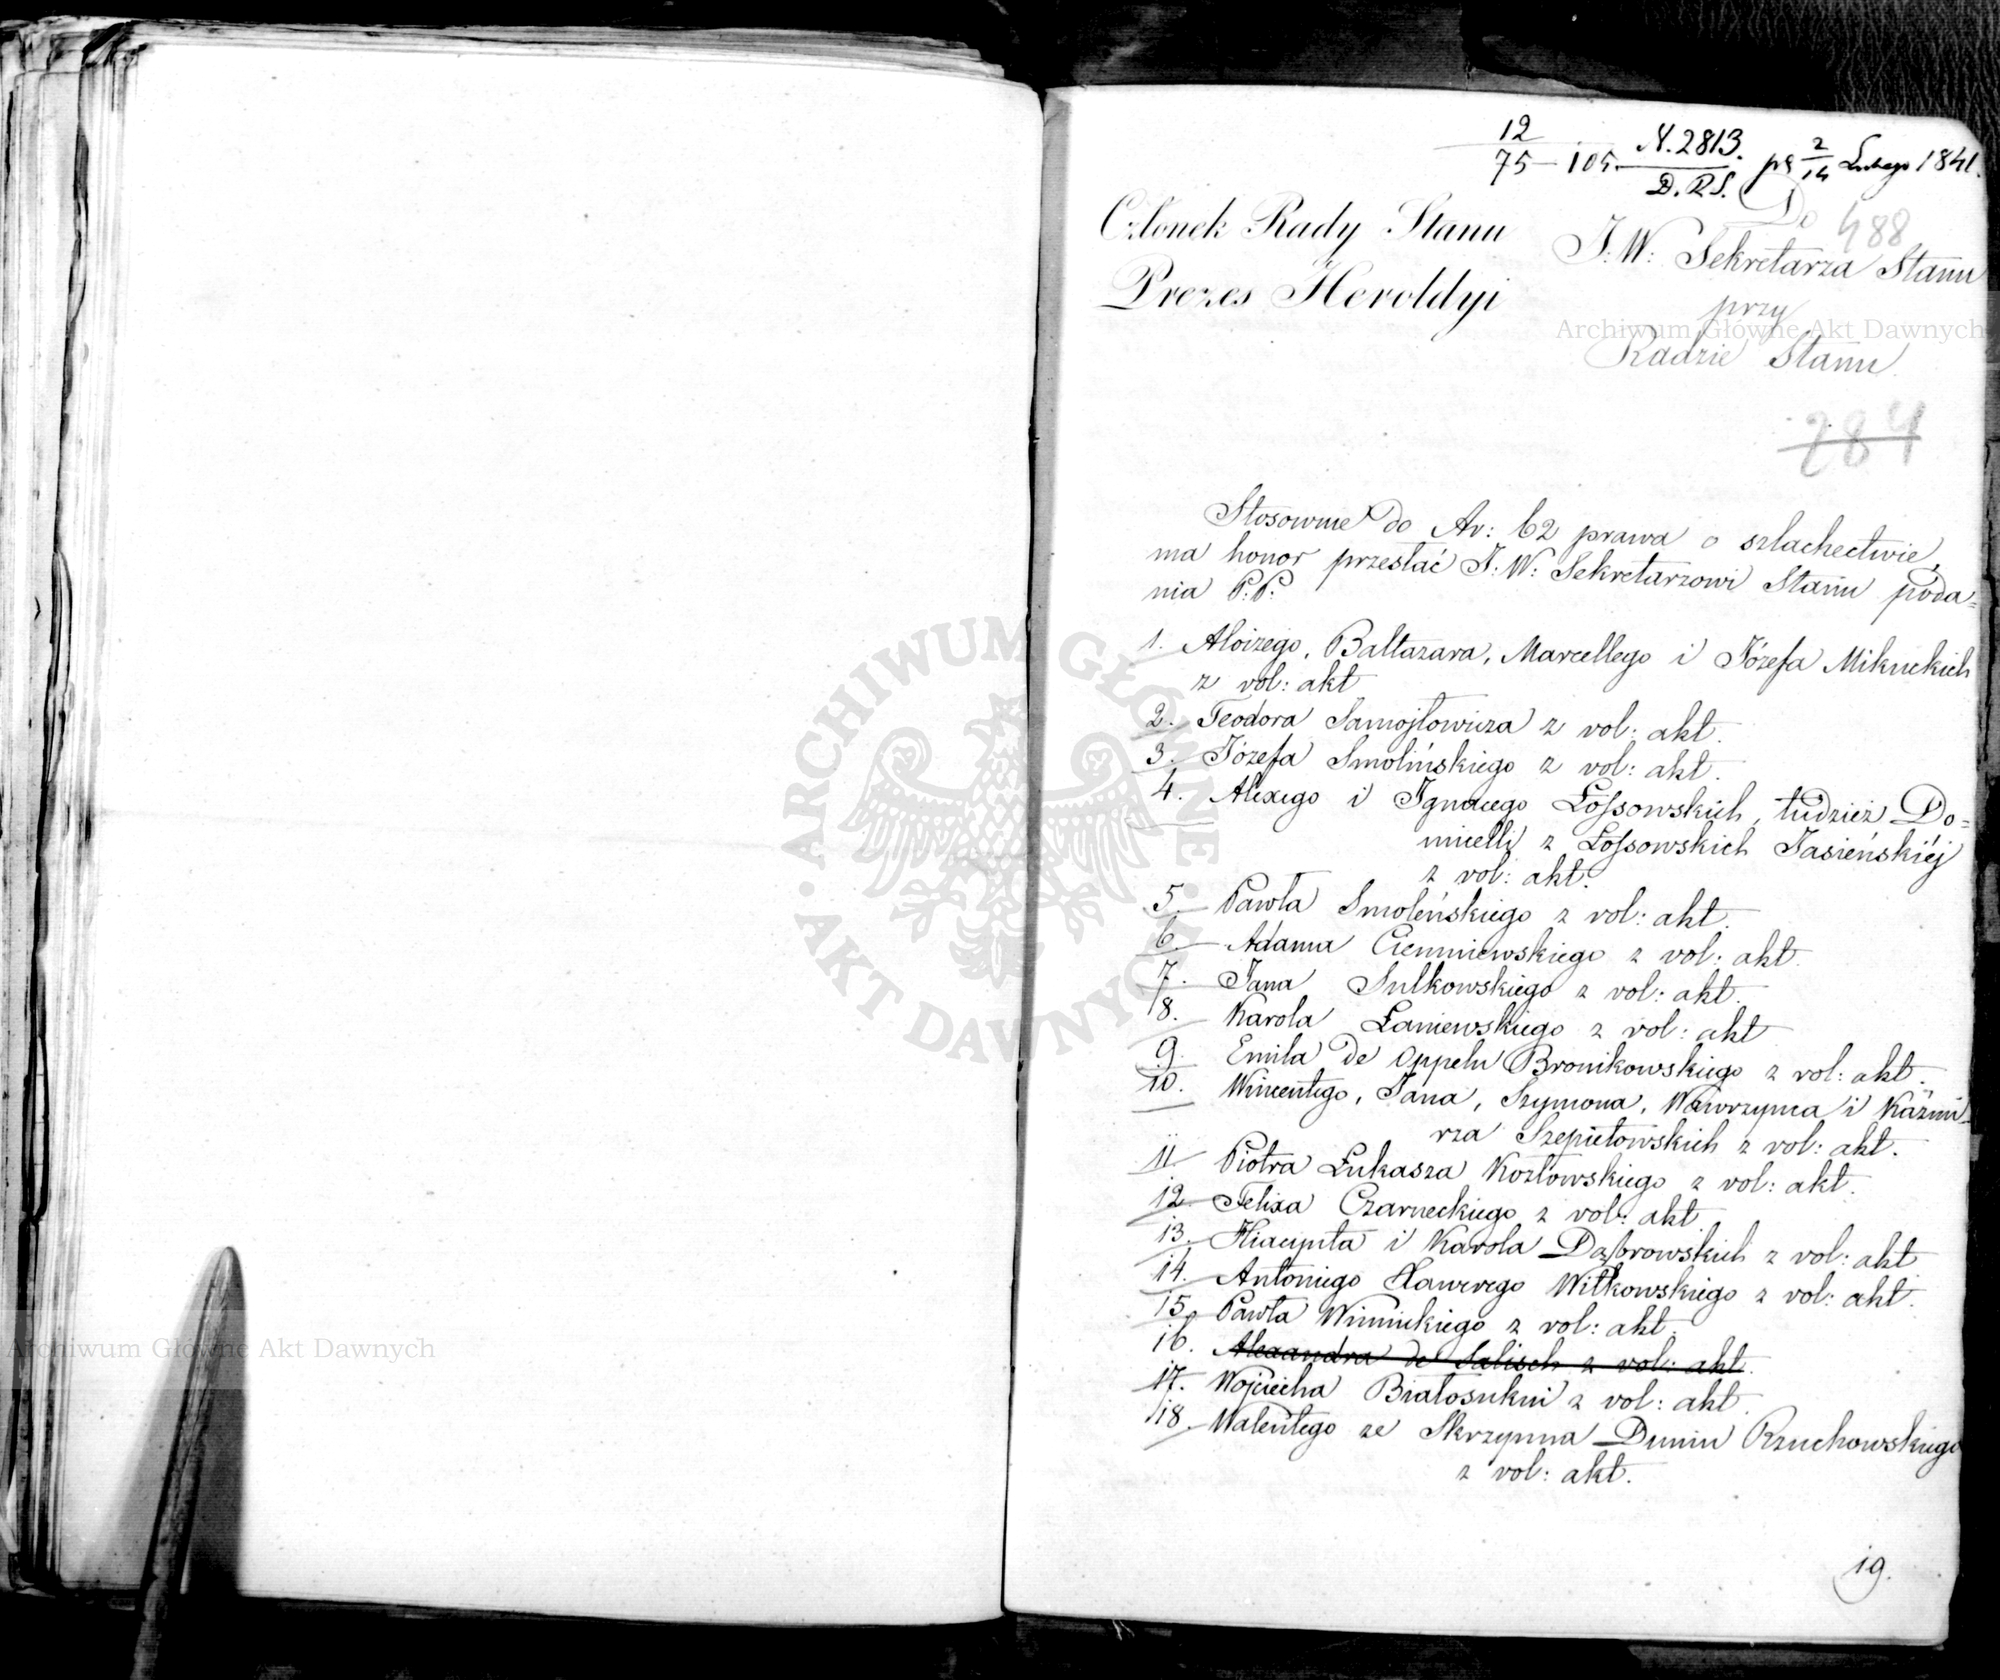 12
75 — 105. N. 2813. pr 2/14 Lutego 1841.
D.R.S.
Członek Rady Stanu
Prezes Heroldyi
Do
488
J: W: Sekretarza Stanu
przy
Radzie Stanu
284
Stosownie do Ar: 62 prawa o szlachectwie,
ma honor przesłać J: W: Sekretarzowi Stanu poda=
nia P:P:
1. Aloizego, Baltazara, Marcellego i Józefa Mikuckich
z vol: akt
2. Teodora Samojłowicza z vol: akt.
3. Józefa Smolińskiego z vol: akt.
4. Alexego i Ignacego Łossowskich, tudzież Do=
micelli z Łossowskich Jasieńskiéj
z vol: akt.
5. Pawła Smoleńskiego z vol: akt.
6. Adama Ciemniewskiego z vol: akt.
7. Jana Sulkowskiego z vol: akt.
8. Karola Łaniewskiego z vol: akt
9. Emila de Oppeln Bronikowskiego z vol: akt.
10. Wincentego, Jana, Szymona, Wawrzynca i Kaźmi=
rza Szepietowskich z vol: akt.
11. Piotra Łukasza Kozłowskiego z vol: akt.
12. Felixa Czarneckiego z vol: akt.
13. Hiacynta i Karola Dąbrowskich z vol: akt
14. Antoniego Xawerego Witkowskiego z vol: akt.
15. Pawła Winnickiego z vol: akt.
16. Alexandra de Salisch z vol: akt.
17. Wojciecha Białosukni z vol: akt.
18. Walentego ze Skrzynna Dunin Rzuchowskiego
z vol: akt.
19.
Archiwum Główne Akt Dawnych
ARCHIWUM GŁÓWNE AKT DAWNYCH
Archiwum Główne Akt Dawnych